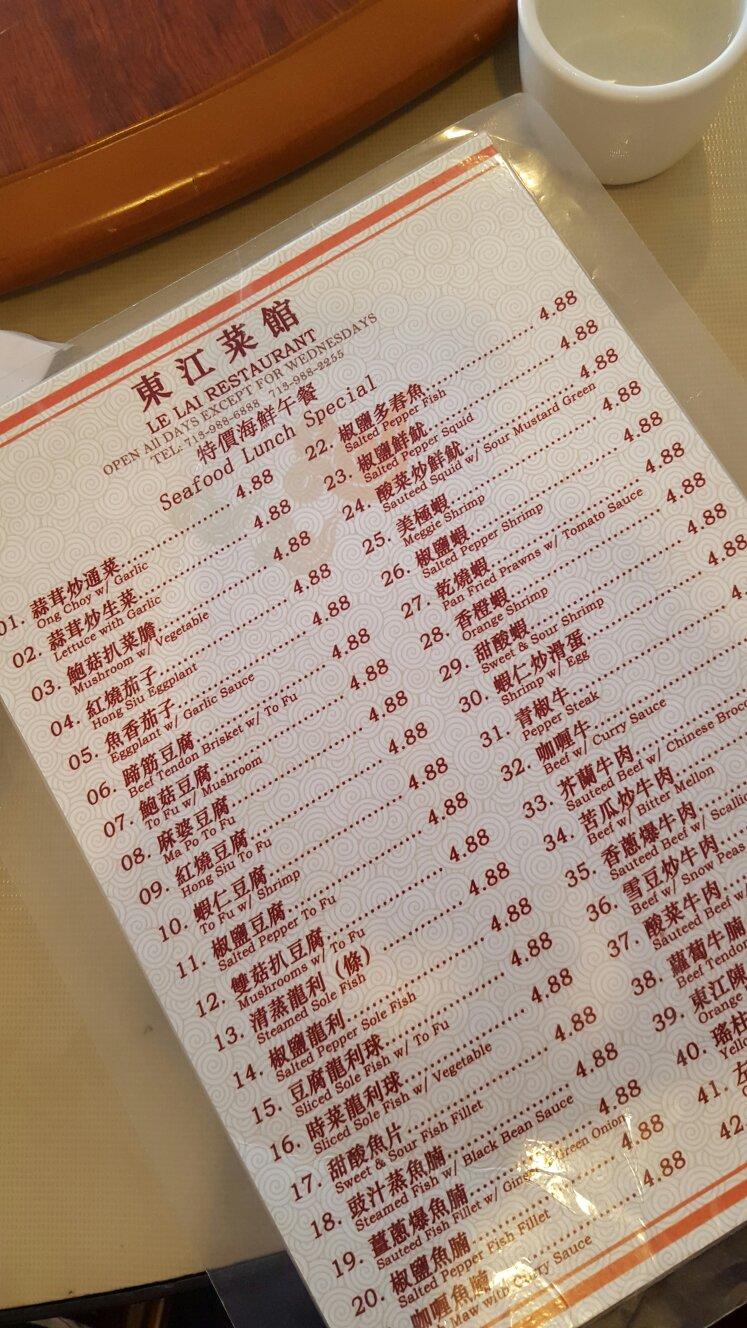 東江菜館
LE LAI RESTAURANT
OPEN All DAYS EXCEPT FOR WEDNESDAYS
TEL: 713-988-6888 713-988-2255
特價海鮮午餐
Seafood Lunch Special
01. 蒜茸炒通菜 4.88
Ong Choy w/ Garlic
02. 蒜茸炒生菜 4.88
Lettuce with Garlic
03. 鮑菇扒菜膽 4.88
Mushroom w/ Vegetable
04. 紅燒茄子 4.88
Hong Siu Eggplant
05. 魚香茄子 4.88
Eggplant w/ Garlic Sauce
06. 蹄筋豆腐 4.88
Beef Tendon Brisket w/ To Fu
07. 鮑菇豆腐 4.88
To Fu w/ Mushroom
08. 麻婆豆腐 4.88
Ma Po To Fu
09. 紅燒豆腐 4.88
Hong Siu To Fu
10. 蝦仁豆腐 4.88
To Fu w/ Shrimp
11. 椒鹽豆腐 4.88
Salted Pepper To Fu
12. 雙菇扒豆腐 4.88
Mushrooms w/ To Fu
13. 清蒸龍利 (條) 4.88
Steamed Sole Fish
14. 椒鹽龍利 4.88
Salted Pepper Sole Fish
15. 豆腐龍利球 4.88
Sliced Sole Fish w/ To Fu
16. 時菜龍利球 4.88
Sliced Sole Fish w/ Vegetable
17. 甜酸魚片 4.88
Sweet & Sour Fish Fillet
18. 豉汁蒸魚腩 4.88
Steamed Fish w/ Black Bean Sauce
19. 薑蔥爆魚腩 4.88
Sauteed Fish Fillet w/ Ginger Green Onion
20. 椒鹽魚腩 4.88
Salted Pepper Fish Fillet
咖喱魚腩 4.88
Maw with Curry Sauce
22. 椒鹽多春魚 4.88
Salted Pepper Fish
23. 椒鹽鮮魷 4.88
Salted Pepper Squid
24. 酸菜炒鮮魷 4.88
Sauteed Squid w/ Sour Mustard Green
25. 美極蝦 4.88
Meggie Shrimp
26. 椒鹽蝦 4.88
Salted Pepper Shrimp
27. 乾燒蝦 4.88
Pan Fried Prawns w/ Tomato Sauce
28. 香橙蝦 4.88
Orange Shrimp
29. 甜酸蝦 4.88
Sweet & Sour Shrimp
30. 蝦仁炒滑蛋
Shrimp w/ Egg
31. 青椒牛
Pepper Steak
32. 咖喱牛
Beef w/ Curry Sauce
33. 芥蘭牛肉
Sauteed Beef w/ Chinese
34. 苦瓜炒牛肉
Beef w/ Bitter Mellon
35. 香蔥爆牛肉
Sauteed Beef w/
36. 雪豆炒牛肉
Beef w/ Snow Peas
37. 酸菜牛肉
Sauteed Beef w/
38. 蘿蔔牛腩
Beef
39. 東江陳
Orange
40. 瑤柱
41. 左
42.